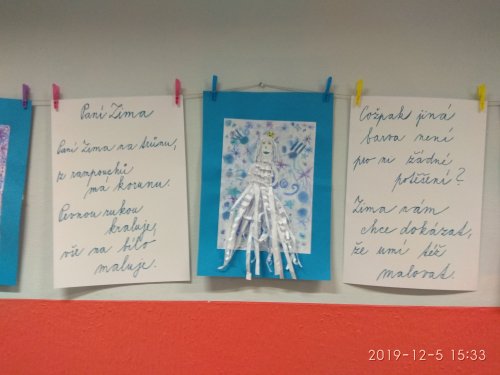 Paní Zima
Paní Zima na trůnu,
z rampouchů
má korunu.
Pevnou rukou
kraluje,
vše na bílo
maluje.
Cožpak jiná
barva není
pro ni žádné
potěšení?
Zima nám
chce dokázat,
že umí též
malovat.
2019-12-5 15:33